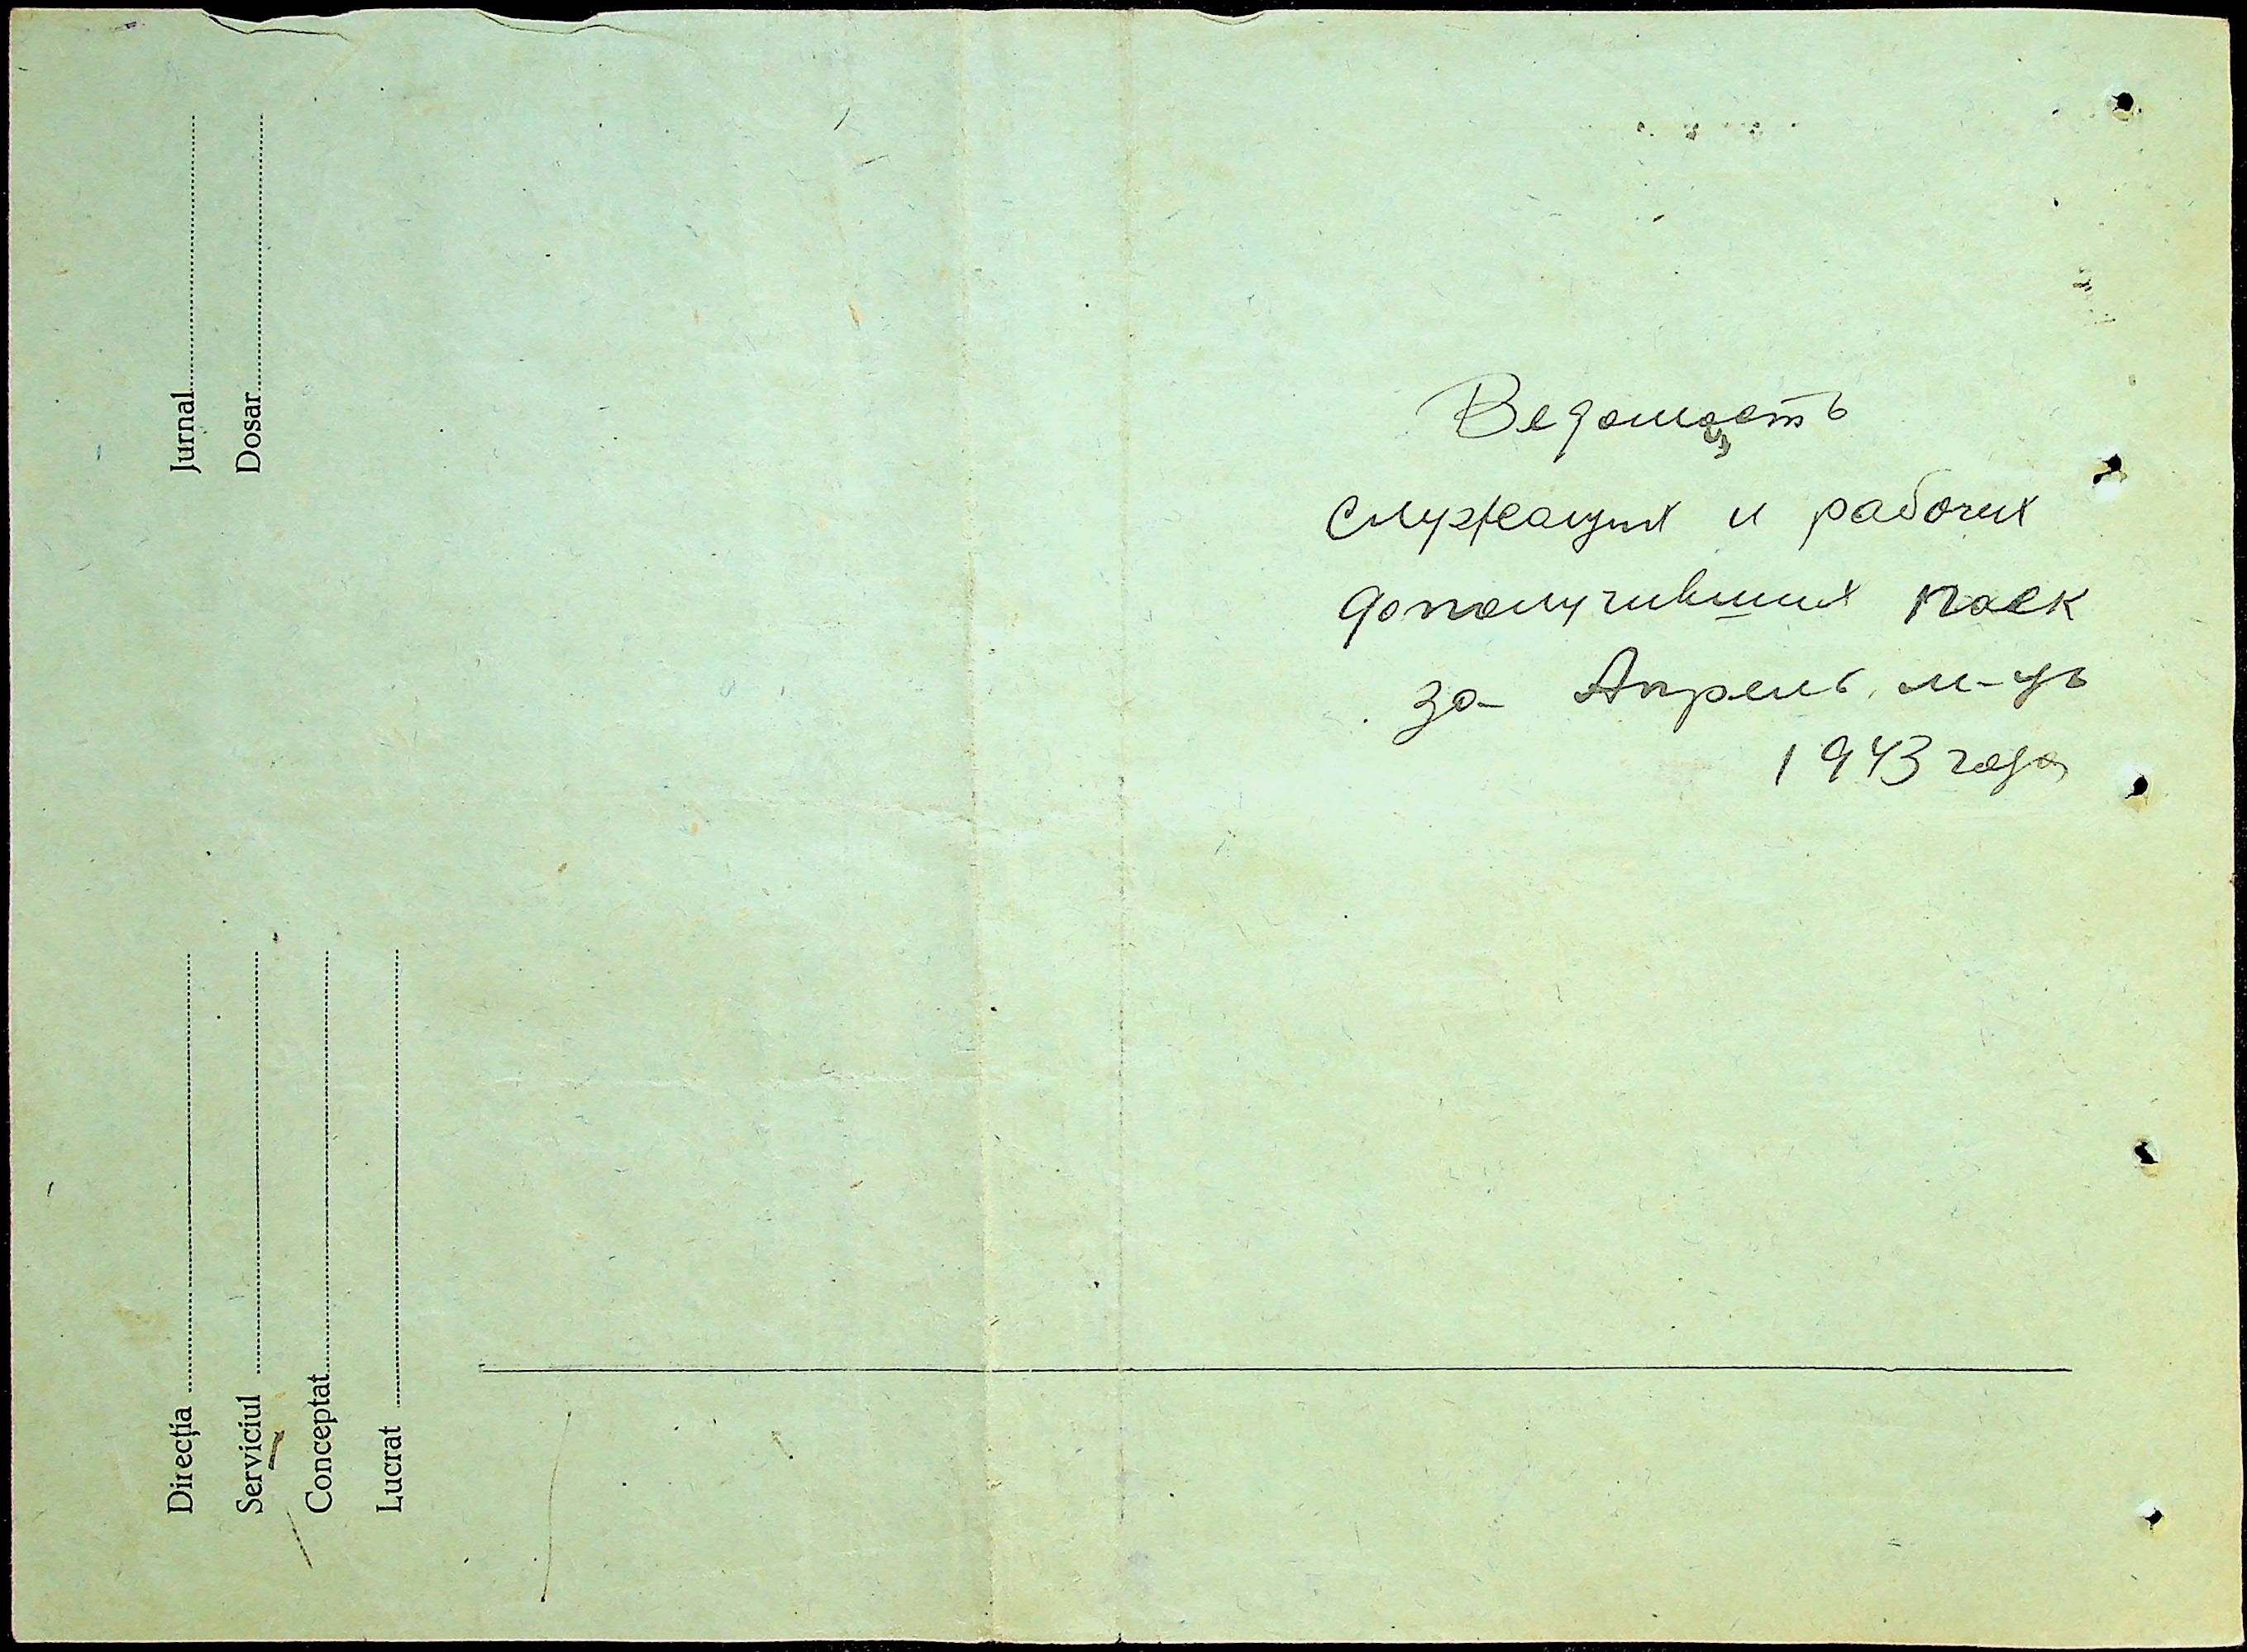 Ведомость
служащих и рабочих
дополучивших паек
за Апрель м-ць
1943 года
Jurnal
Dosar
Direcția
Serviciul
Conceptat
Lucrat